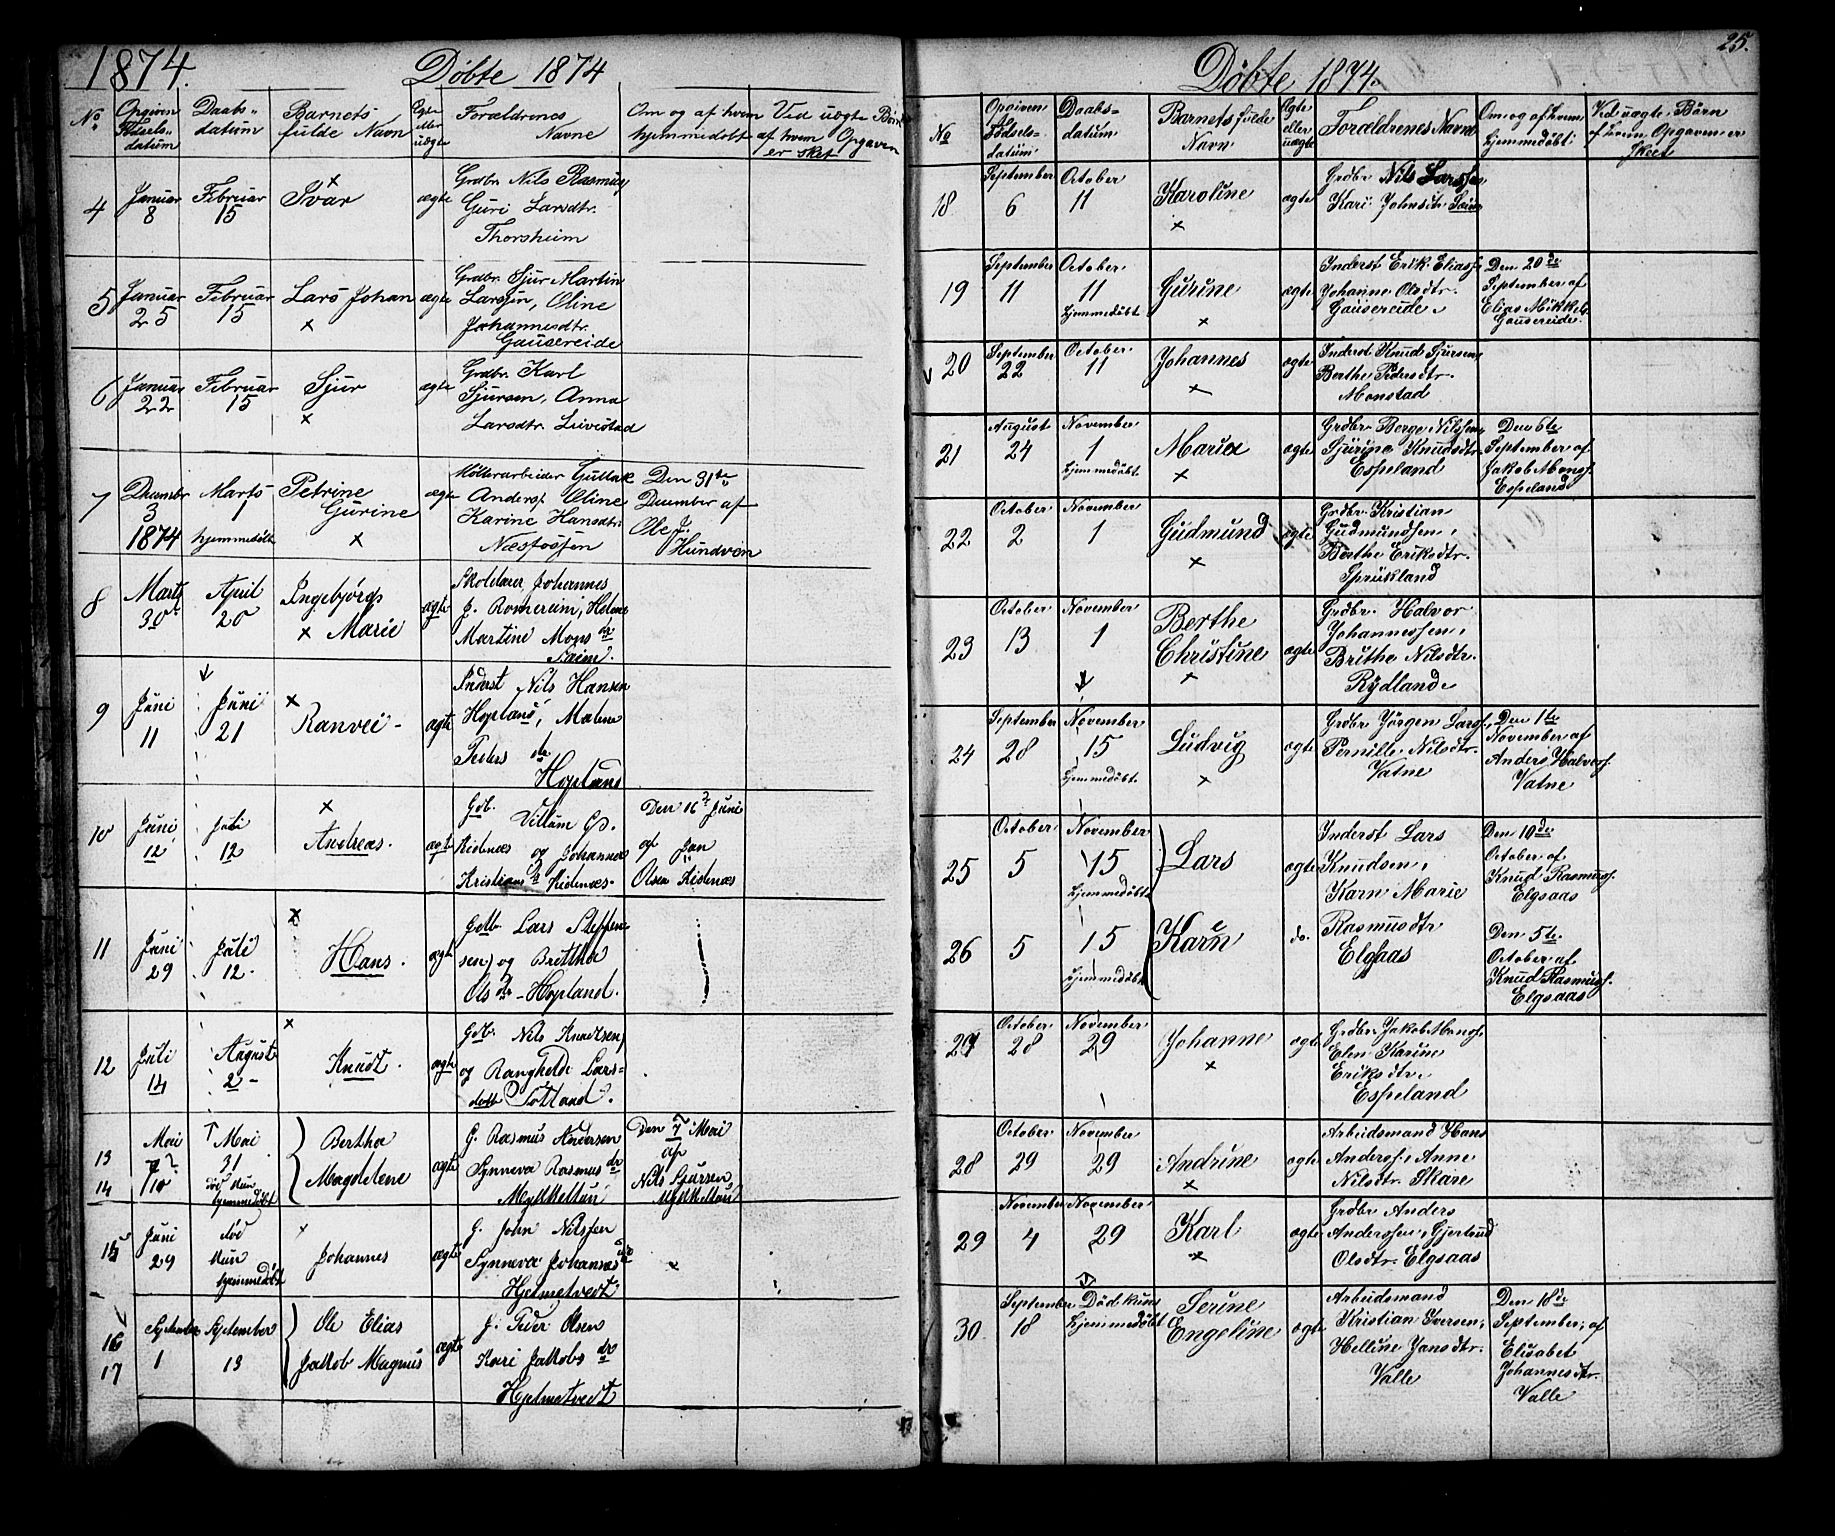 1874.
Döbte 1874
No
Opgiven Fødsels- datum
Daabs- datum
Barnets fulde Navn
Egte eller uægte
Forældrenes Navne
Om og af hvem hjemmedøbt
Ved uægte Børn af hvem Opgaven er sket
4
Januar 8
Februar 15
Ivar
ægte
Grdbr Nils Rasmus
Guri Larsdtr.
Thorsheim
5
Januar 25
Februar 15
Lars Johan
ægte
Grdbr. Sjur Martin
Larssen, Oline
Johannesdtr.
Gausereide
6
Januar 22
Februar 15
Sjur
ægte
Grdbr. Karl
Sjursen, Anna
Larsdtr.
7
December 3 1874
Marts 1
hjemmedøbt
Petrine
Gurine
ægte
Møllerarbeider Guttak
Andersf. Oline
Karine Hansdtr.
Næsfossen
Den 31te
December af
Ole J.
Hundven
8
Marts 30
April 20
Ingebjørg
Marie
ægte
Skolelærer Johannes
J. Romereim, Helene
Martine Mons dr
Saime.
9
Juni 11
Juni 21
Ranvei -
ægte
Inderst Nils Hansen
Hopland, Malene
Peders dtr
Hopland
10
Juni 12
Juli 12
Andreas.
ægte
Gdb. Villum
Kidenæs og Johanna
Kristians Kidenæs-
Den 16 Juni
af Jan
Olsen Kidenæs
11
Juni 29
Juli 12.
Hans.
ægte
Gdb. Lars Steffen-
sen, og Brittha
Ols dr - Hopland.
12
Juli 14
August 2 -
Knudt.
ægte
Gdb. Nils Knudsen,
og Ranghelde Lars=
dott
13
14
Mai
Mai 31
død kun
hjemmedøbt
Bertha
Magdelene
ægte
G. Rasmus Andersen
Synneva Rasmus dr
Myhkeltun
Den 7 Mai
af
Nils Sjursen,
Myhkeltun
15
Juni 29
død
kun
hjemmedøbt
Johannes
ægte
G. John Nilssen
Synneva Johannes dtr
Hjelmetvedt
16
17
September 1
September 13
Ole Elias
Jakob Magnus
ægte
G. Peder Olsen
Kari Jakobs dr
Hjelmetvedt
25.
Döbte 1874.
No
Opgiven Fødsels- datum
Daabs- datum
Barnets fulde Navn
Egte eller uægte
Forældrenes Navne
Om og af hvem hjemmedöbt
Ved uægte Børn af hvem Opgaven er skeet
18
September 6
October 11
Karoline
ægte
Grdbr Nils Larssen
Kari Johnsdtr.
19
September 11
October 11
hjemmedøbt
Gurine
ægte
Inderst Erik Eliasf.
Johanne Olsdtr.
Gausereide.
Den 20de
September af
Elias Mikkels.
Gausereide.
20
September 22
October 11
Johannes
ægte
Inderst Knud Sjursen,
Berthe Pedersdtr.
Monstad
21
August 24
November 1
hjemmedøbt
Maria
ægte
Grdbr. Berge Nilssen,
Sjurine Knudsdtr.
Espeland
Den 6te
September af
Jakob Monsf.
Espeland
22
October 2
November 1
Gudmund
ægte
Grdbr. Kristian
Gudmundsen,
Berthe Eriksdtr.
Sprukland
23
October 13
November 1
Berthe
Christine
ægte
Grdbr. Halvor
Johannessen,
Brithe Nilsdtr.
Rydland
24
September 28
November 15
hjemmedøbt
Ludvig
ægte
Grdbr Jörgen Larsf.,
Pernille Nilsdtr.
Vatne
Den 1te
November af
Anders Halvorsf.
Vatne
25
October 5
November 15
hjemmedøbt
Lars
ægte
Inderst Lars
Knudsen,
Karn Marie
Rasmusdtr
Elgsaas
Den 10de
October af
Knud Rasmusf.
Elgsaas
26
5
15
hjemmedøbt
Karn
do.
Den 5te
October af
Knud Rasmusf.
Elgsaas
27
October 28
November 29
Johanne
ægte
Grdbr. Jakob Monsf.
Elen Karine
Eriksdtr.
Espeland
28
October 29
November 29
Andrine
ægte
Arbeidsmand Hans
Andersf., Anne
Nilsdtr. Skare
29
November 4
November 29
Karl
ægte
Grdbr Anders
Anderssen, Gjertrud
Olsdtr. Elgsaas
30
September 18
Död kun
hjemmedöbt
Serine
Engeline
ægte
Arbeidsmand
Kristian Iversen,
Helline Jansdtr.
Valle
Den 18de
September, af
Elisabet
Johannesdtr.
Valle